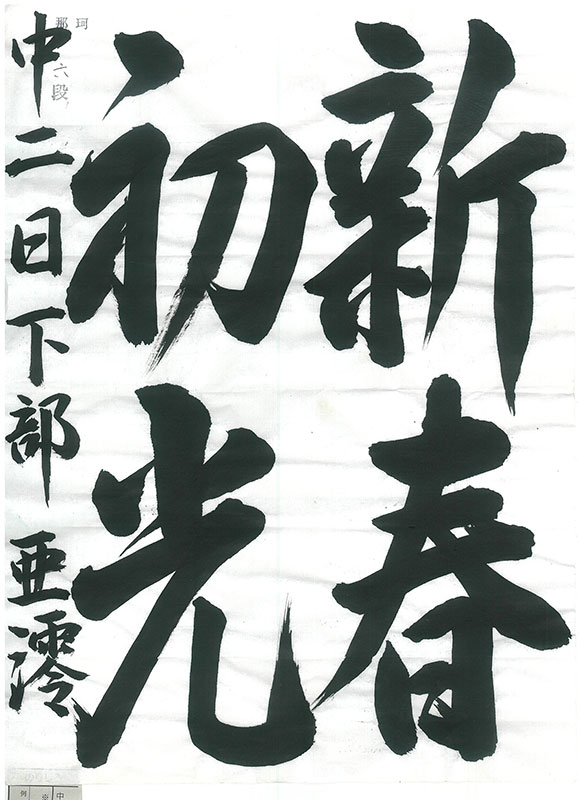 新春
初光
中二日下部亜澪
珂那
六段